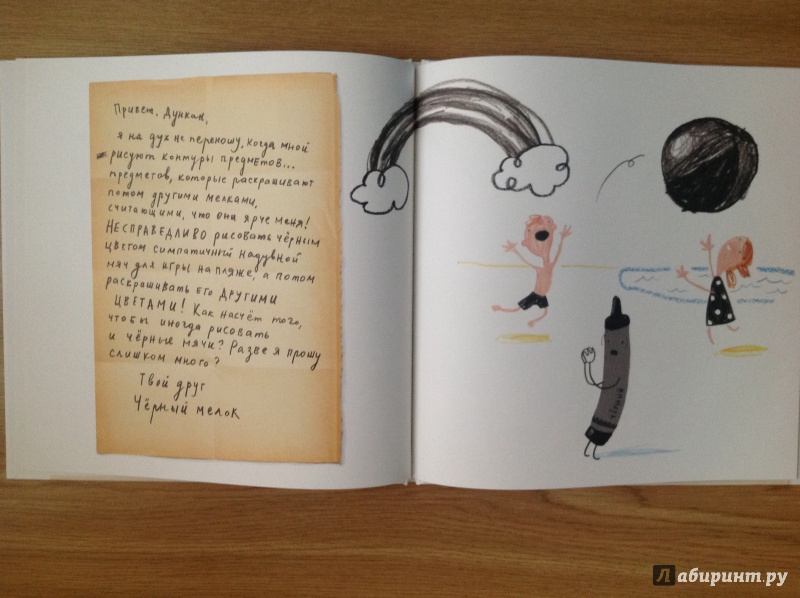 Привет, Дункан,
я на дух не переношу, когда мной
рисуют контуры предметов...
предметов, которые раскрашивают
потом другими мелками,
считающими, что они ярче меня!
НЕСПРАВЕДЛИВО рисовать чёрным
цветом симпатичный надувной
мяч для игры на пляже, а потом
раскрашивать его ДРУГИМИ
ЦВЕТАМИ! Как насчёт того,
чтобы иногда рисовать
и чёрные мячи? Разве я прошу
слишком много?
Твой друг
Чёрный мелок
чёрный
Лабиринт.ру